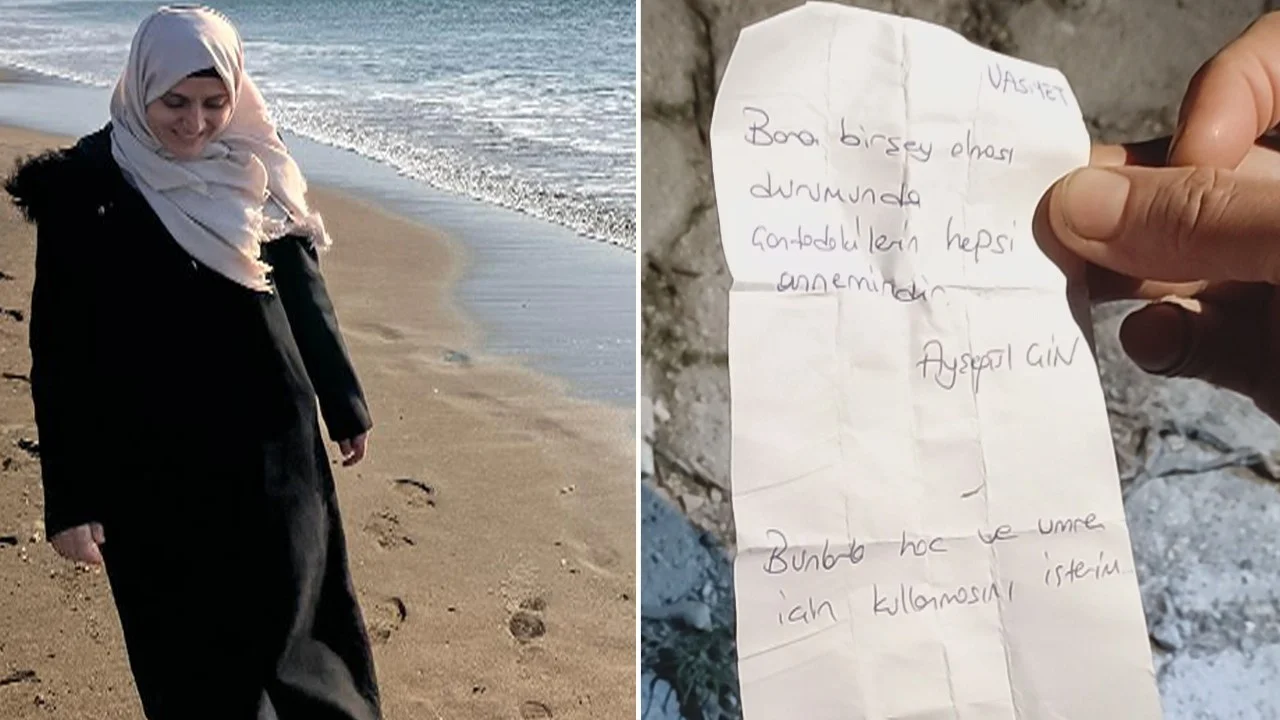 VASİYET
Bana birşey olması
durumunda
Çantadakilerin hepsi
annemindir.
Ayşegül GİN
Bunlarla hac ve umre
için kullanmasını isterim